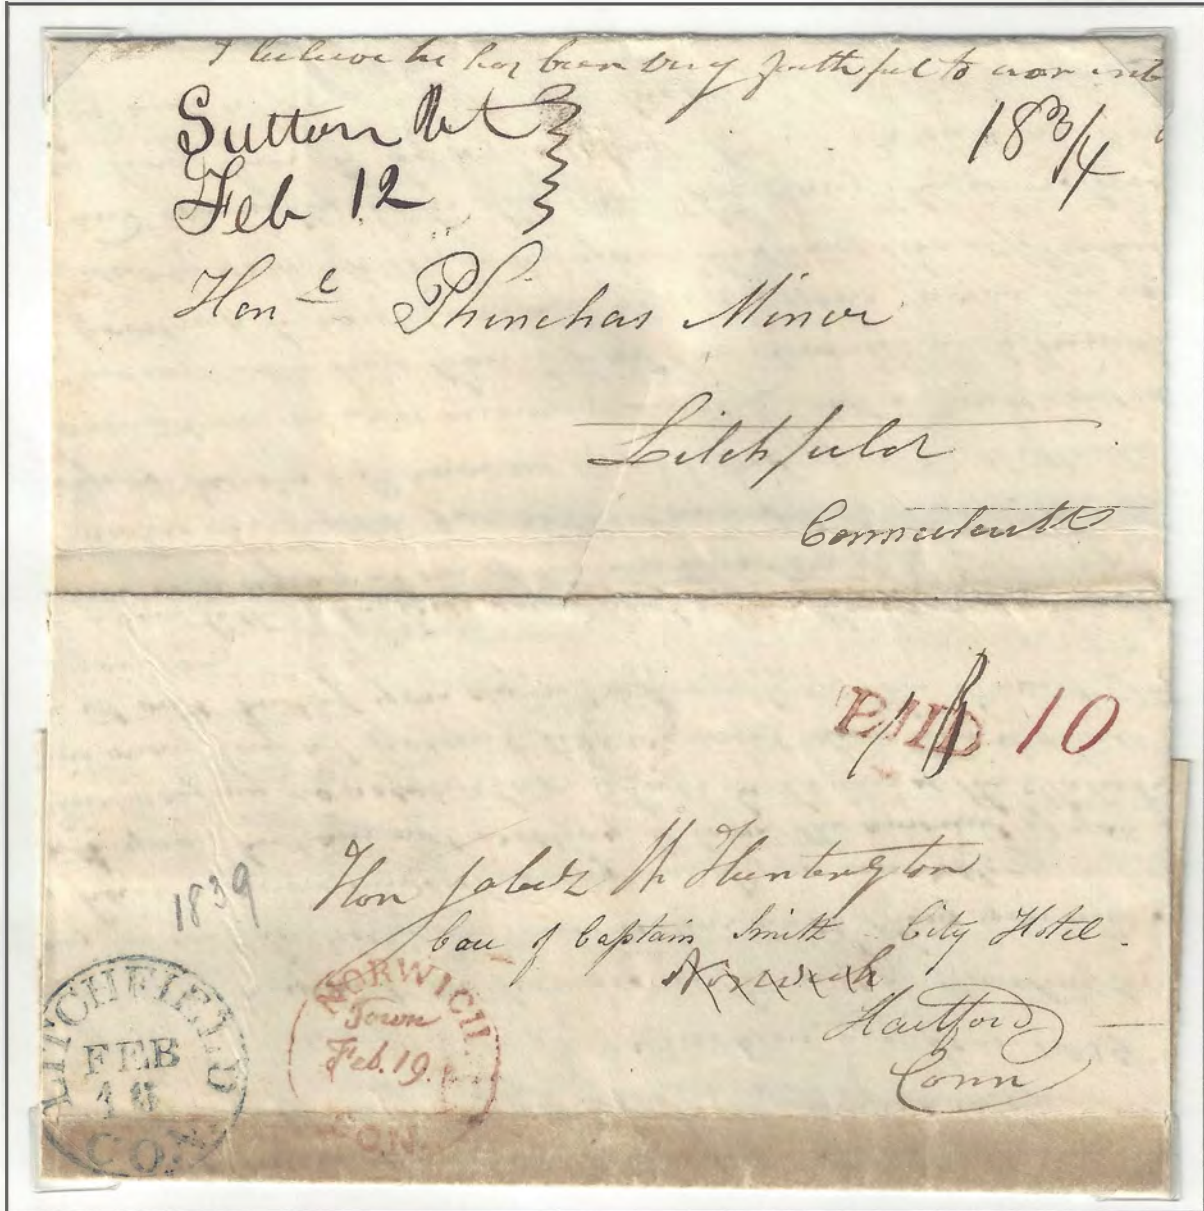 I believe he has been very faithful to our int
Sutton Vt
Feb 12
18 3/4
Honl Phinehas Minor
Litchfield
Connecticutt
PAID 10
1839
Hon Jabez W Huntington
Care of Captain Smith City Hotel.
Norwich
Hartford
Conn
LITCHFIELD
FEB
18
CON.
NORWICH
Town
Feb. 19.
CON.